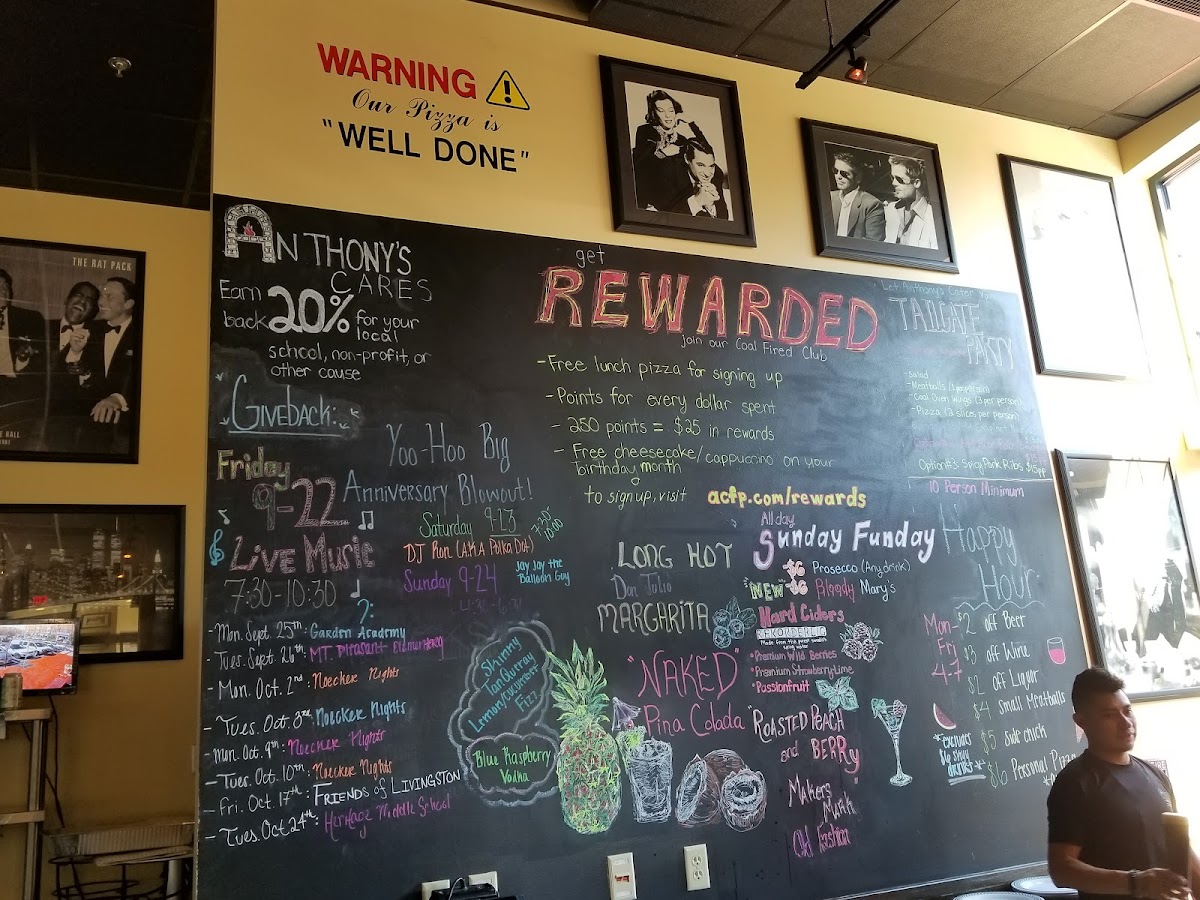 WARNING
Our Pizza is
"WELL DONE"
THE RAT PACK
ANTHONY'S
CARES
Earn
back 20% for your
local
school, non-profit, or
other cause
Giveback:
Friday
9-22
Live Music
7:30-10:30
Yoo-Hoo Big
Anniversary Blowout!
Saturday 9-23 7:30-
10:00
DJ Ron (AKA Polka Dot)
Sunday 9-24
Jay Jay the
Balloon Guy
- Mon. Sept. 25th: Garden Academy
- Tues. Sept. 26th: MT. Pleasant Elementary
- Mon. Oct. 2nd: Noecker Nights
- Tues. Oct. 3rd: Noecker Nights
- Mon. Oct. 9th: Noecker Nights
- Tues. Oct. 10th: Noecker Nights
- Fri. Oct. 17th: Friends of Livingston
- Tues. Oct. 24th: Heritage Middle School
get
REWARDED
join our Coal Fired Club
- Free lunch pizza for signing up
- Points for every dollar spent
- 250 points = $25 in rewards
- Free cheesecake/cappuccino on your
birthday month
to sign up, visit acfp.com/rewards
Let Anthony's Cater
TAILGATE
PARTY
- Salad
- Meatballs (1 per person)
- Coal Oven Wings (3 per person)
- Pizza (2 slices per person)
Option #3: Spicy Pork Ribs $15pp
10 Person Minimum
Skinny
Tanqueray
Lemon/Cucumber
Fizz
Blue Raspberry
Vodka
LONG HOT
Don Julio
MARGARITA
"NAKED"
Pina Colada
All day
Sunday Funday
-$6 Prosecco (Any drink)
NEW -$6 Bloody Mary's
Hard Ciders
REKORDERLIG
*Premium Wild Berries
*Premium Strawberry-Lime
*Passionfruit
"ROASTED PEACH
and BERRY"
Makers
Mark
Old Fashion
Happy
Hour
Mon-
Fri
4-7
$2 off Beer
$3 off Wine
$2 off Liquor
$4 Small Meatballs
$5 side chick
$6 Personal Pizza
*excludes
$6 Small
drinks*